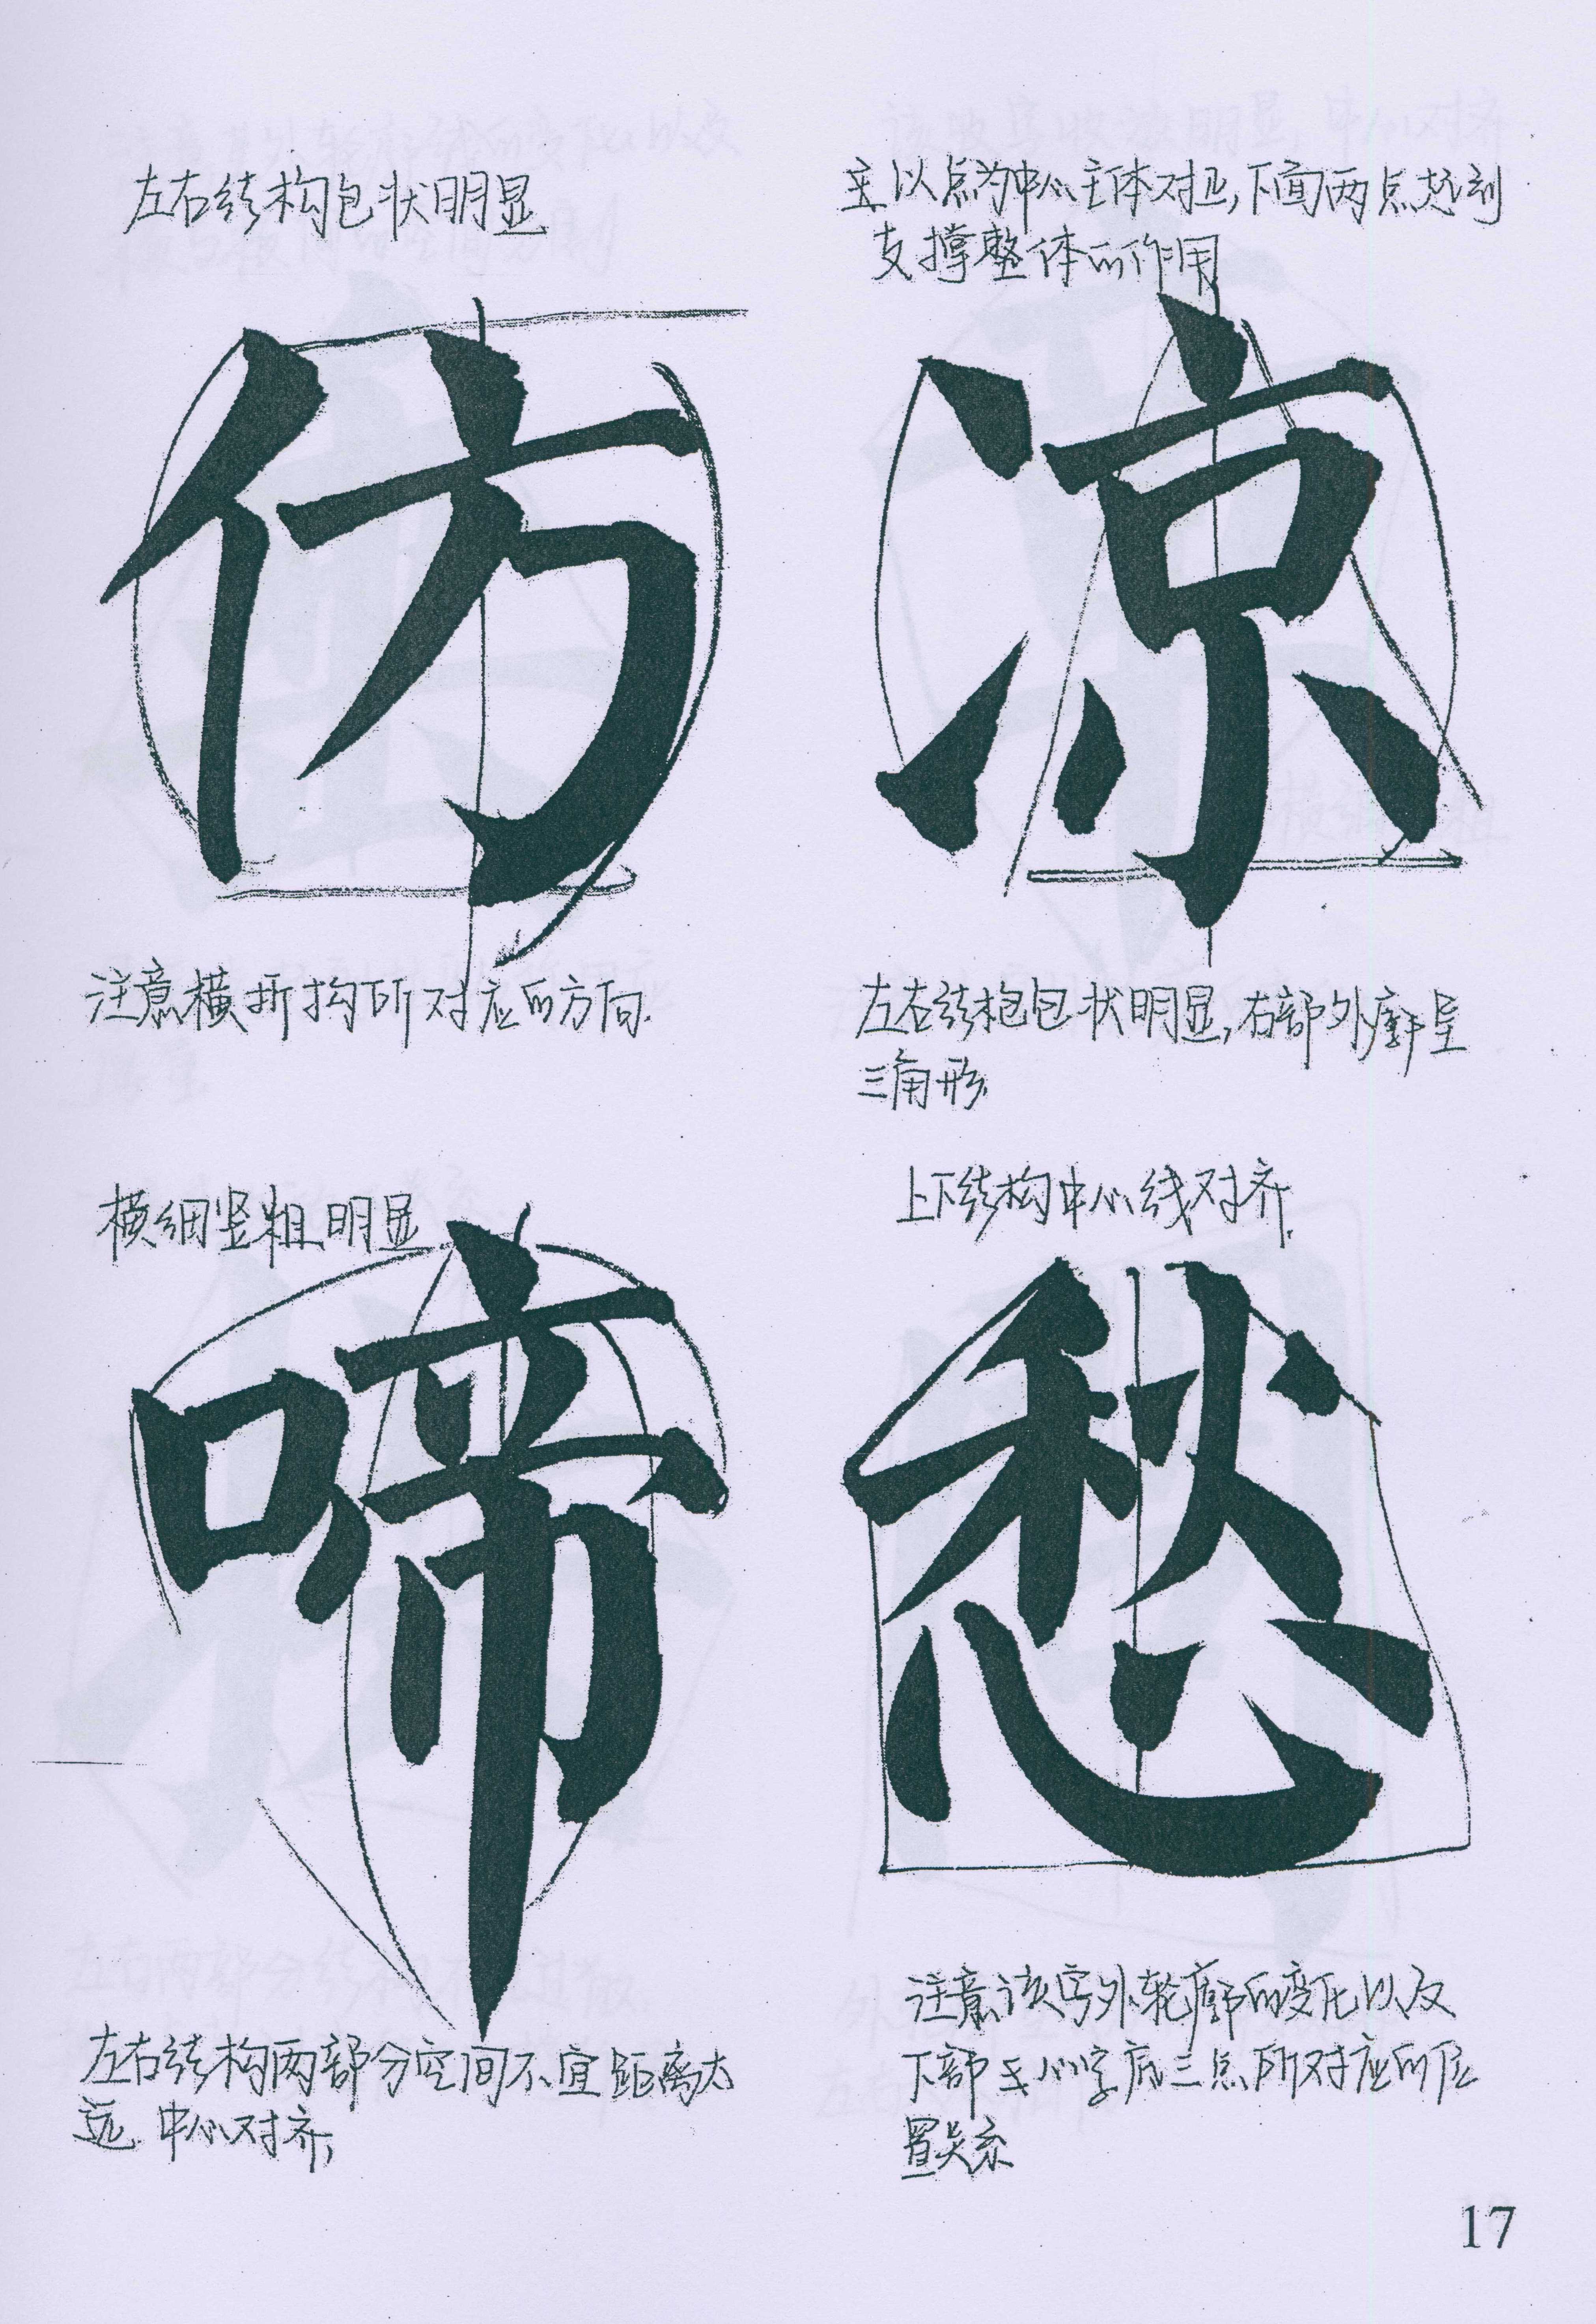 左右结构包状明显
主以点为中心主体对正,下面两点起到
支撑整体的作用
仿
凉
注意横折构所对应的方向.
左右结构包状明显,右部外廓呈
三角形.
横细竖粗明显
上下结构中心线对齐.
啼
愁
左右结构两部分空间不宜距离太
远.中心对齐,
注意该字外轮廓的变化以及
下部 心字底三点所对应的位
置关系
17